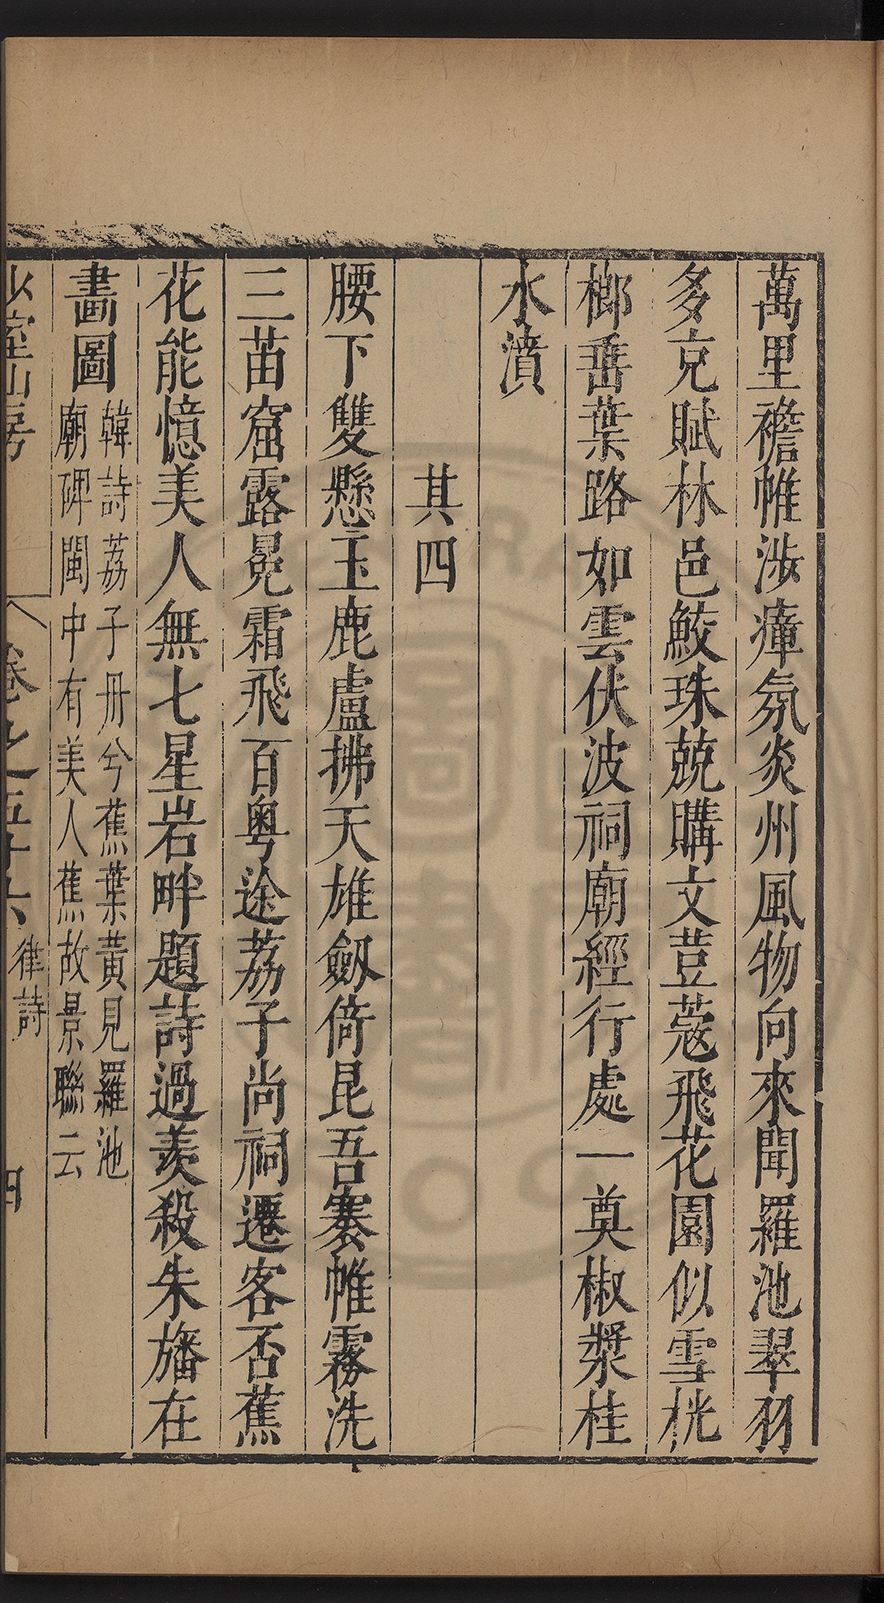 萬里襜帷涉瘴氛炎州風物向來聞羅池翠羽
多充賦林邑鮫珠競購文荳蔻飛花園似雪桄
榔垂葉路如雲伏波祠廟經行處一奠椒漿桂
水濆
其四
腰下雙懸玉鹿盧拂天雄劔倚昆吾褰帷霧洗
三苗窟露冕霜飛百粵途荔子尚祠遷客否蕉
花能憶美人無七星岩畔題詩過羨殺朱旛在
畫圖
韓詩荔子丹兮蕉葉黃見羅池
廟碑閩中有美人蕉故景聯云
少室山房
卷之五十六
律詩
四